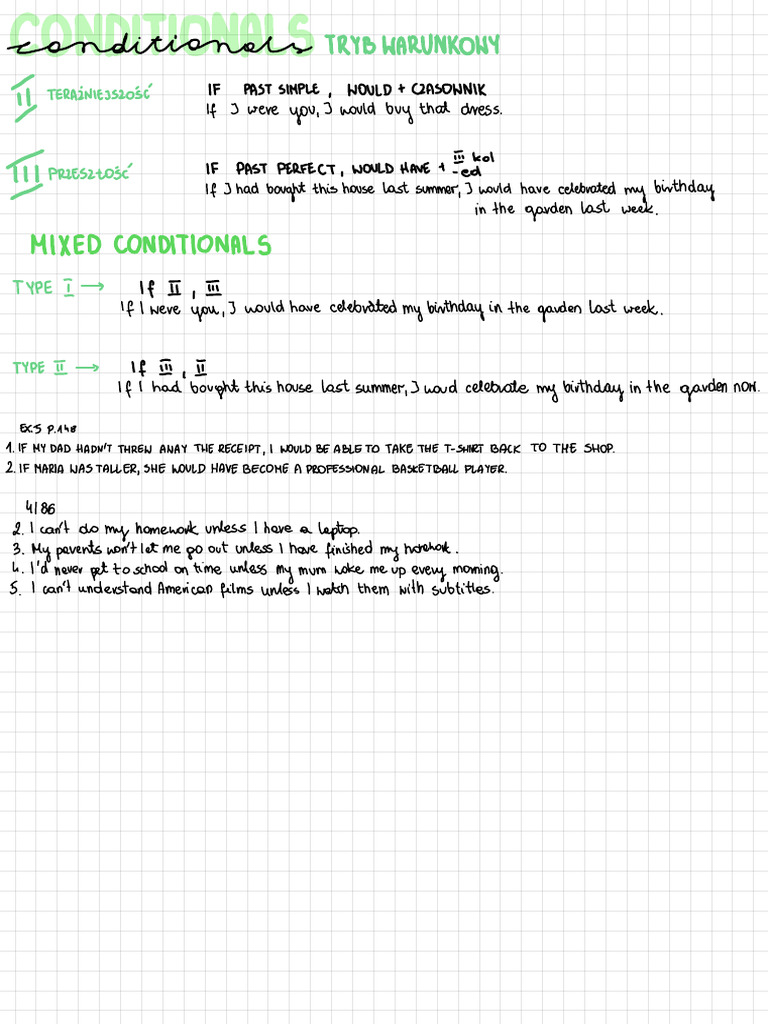 CONDITIONALS
conditionals TRYB WARUNKOWY
II TERAŹNIEJSZOŚĆ IF PAST SIMPLE, WOULD + CZASOWNIK
If I were you, I would buy that dress.
III PRZESZŁOŚĆ IF PAST PERFECT, WOULD HAVE + III kol
-ed
If I had bought this house last summer, I would have celebrated my birthday
in the garden last week.
MIXED CONDITIONALS
TYPE I → If II, III
If I were you, I would have celebrated my birthday in the garden last week.
TYPE II → If III, II
If I had bought this house last summer, I woud celebrate my birthday in the garden now.
EX.5 P.148
1. IF MY DAD HADN'T THREW AWAY THE RECEIPT, I WOULD BE ABLE TO TAKE THE T-SHIRT BACK TO THE SHOP.
2. IF MARIA WAS TALLER, SHE WOULD HAVE BECOME A PROFESSIONAL BASKETBALL PLAYER.
4/86
2. I can't do my homework unless I have a laptop.
3. My parents won't let me go out unless I have finished my
4. I'd never get to school on time unless my mum woke me up every morning.
5. I can't understand American films unless I watch them with subtitles.